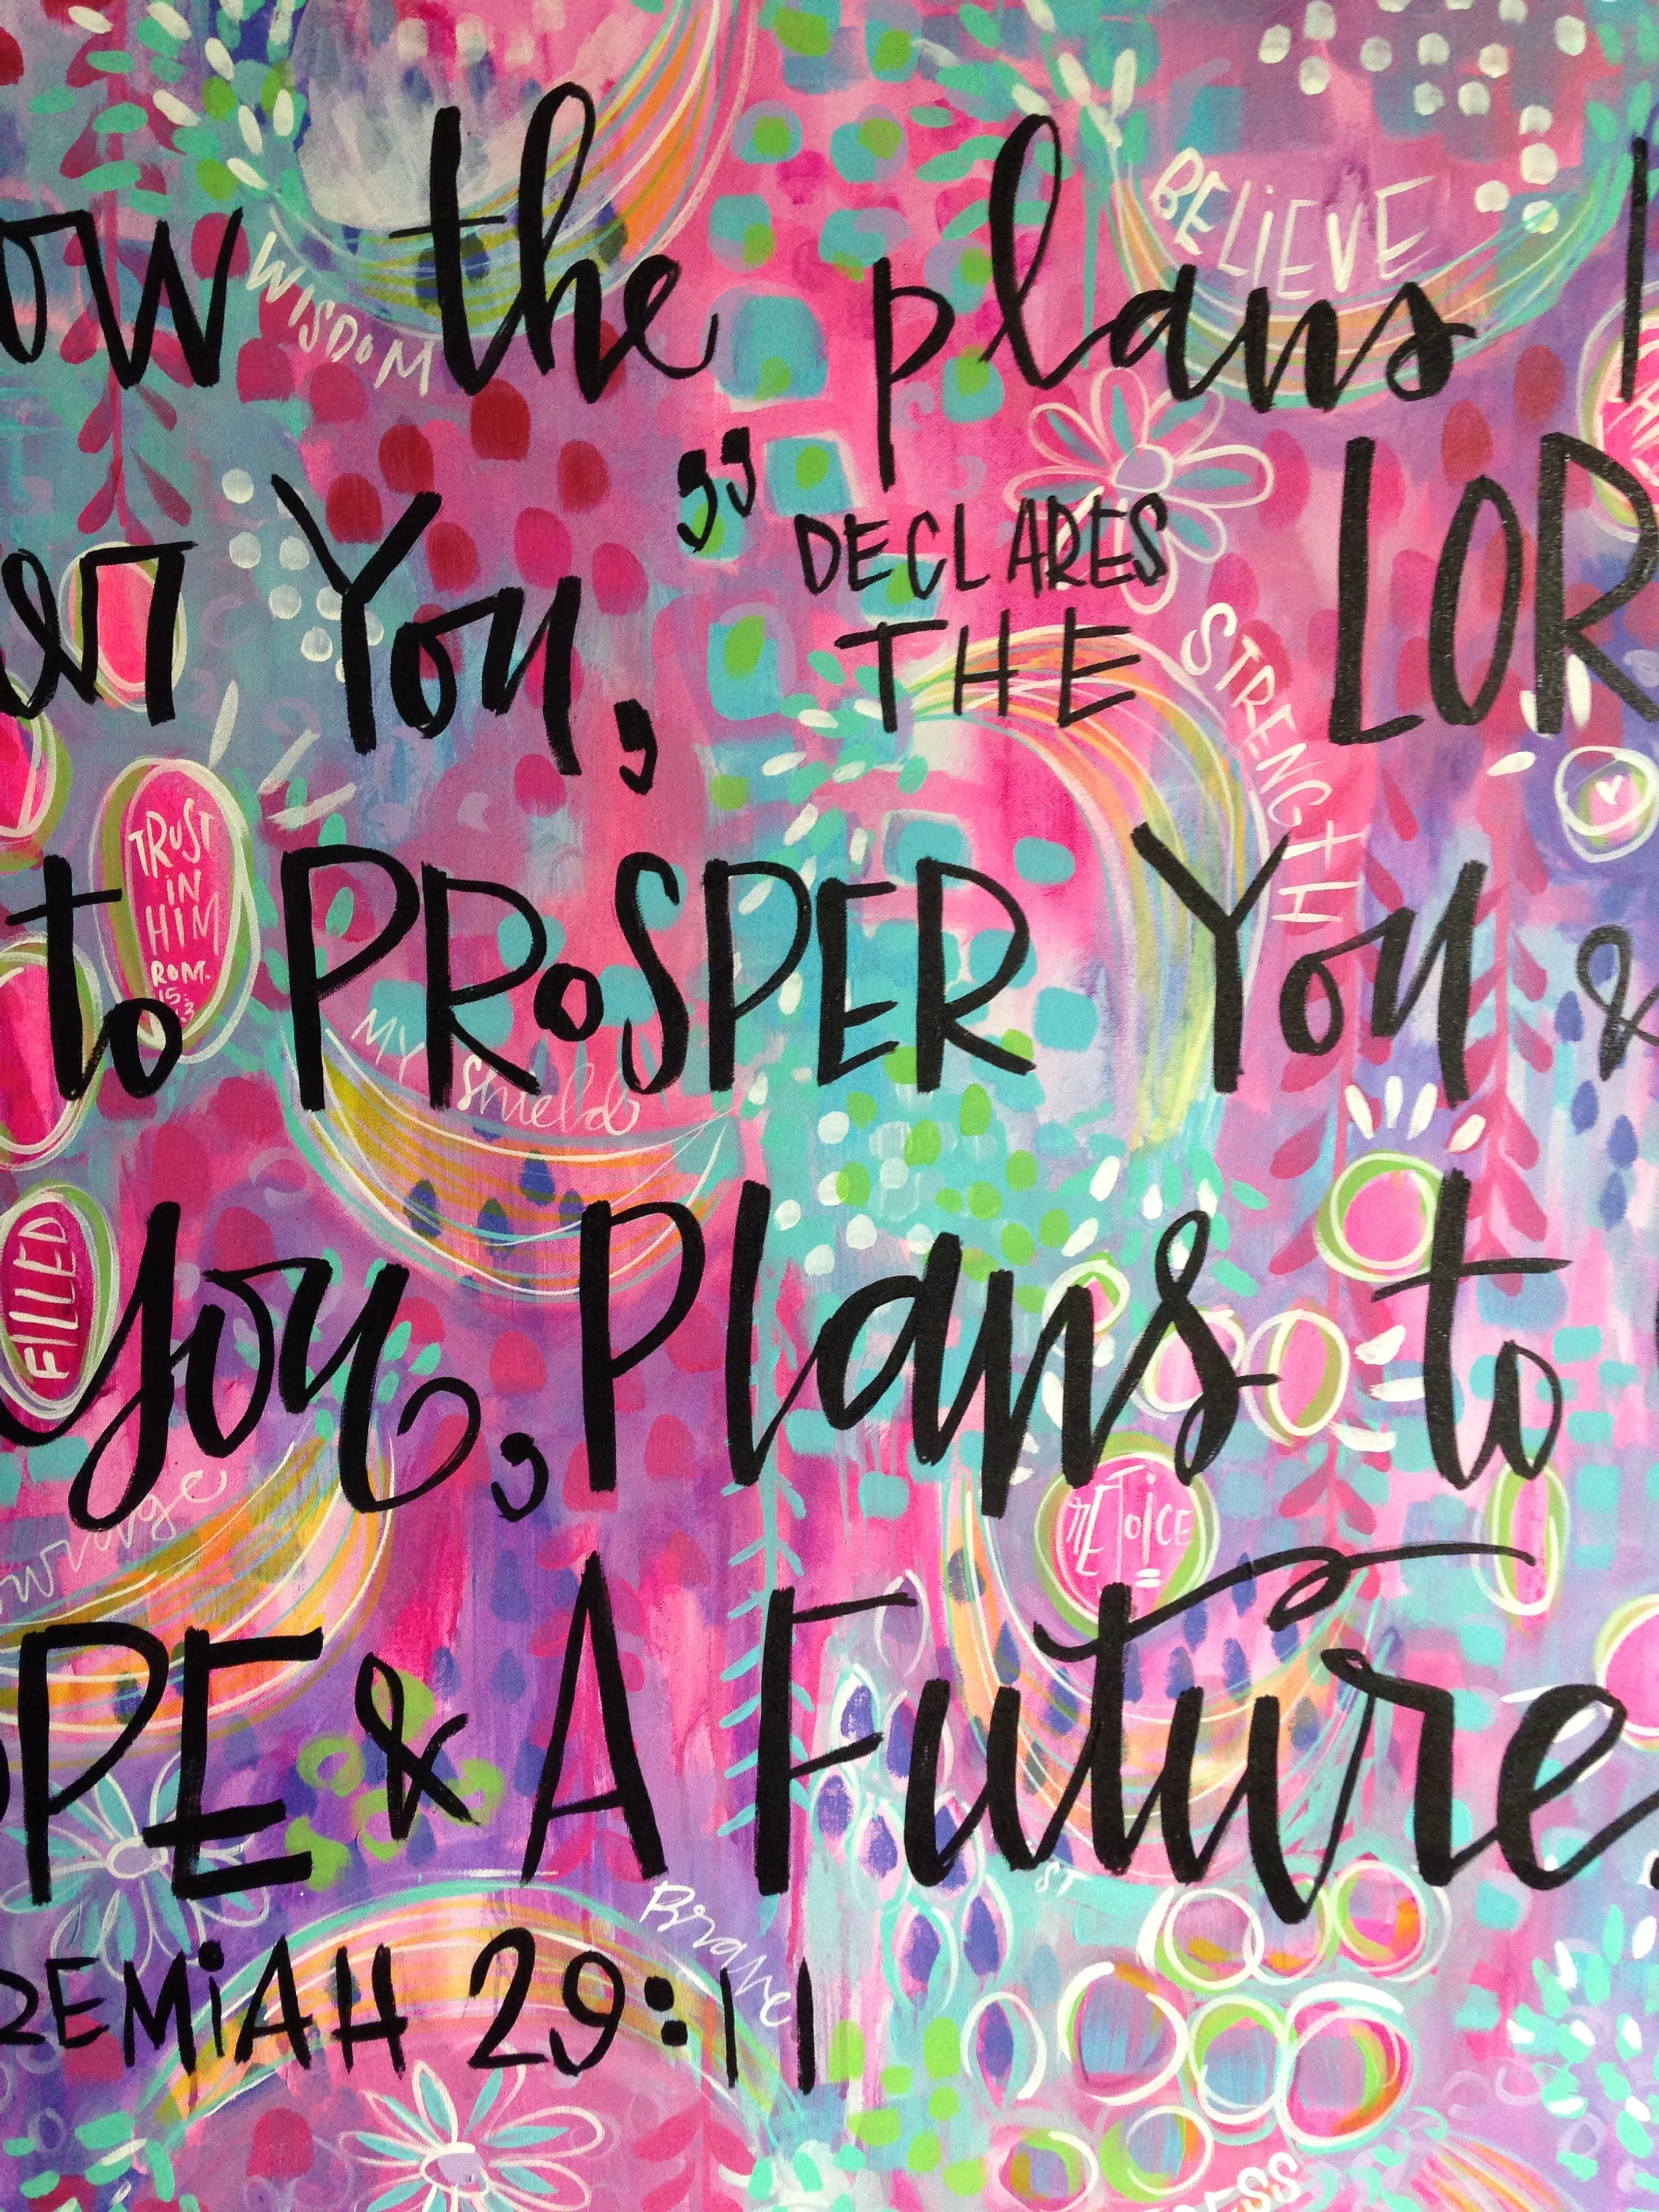 BELIEVE
ow the plans
WISDOM
er You," DECLARES
THE LOR
STRENGTH
TRUST
IN
HIM
ROM.
15:
13
to PROSPER You &
MY Shield
FILLED
you, Plans to
REJOICE
PE & A Future.
Brave
REMiAH 29:11
ESS